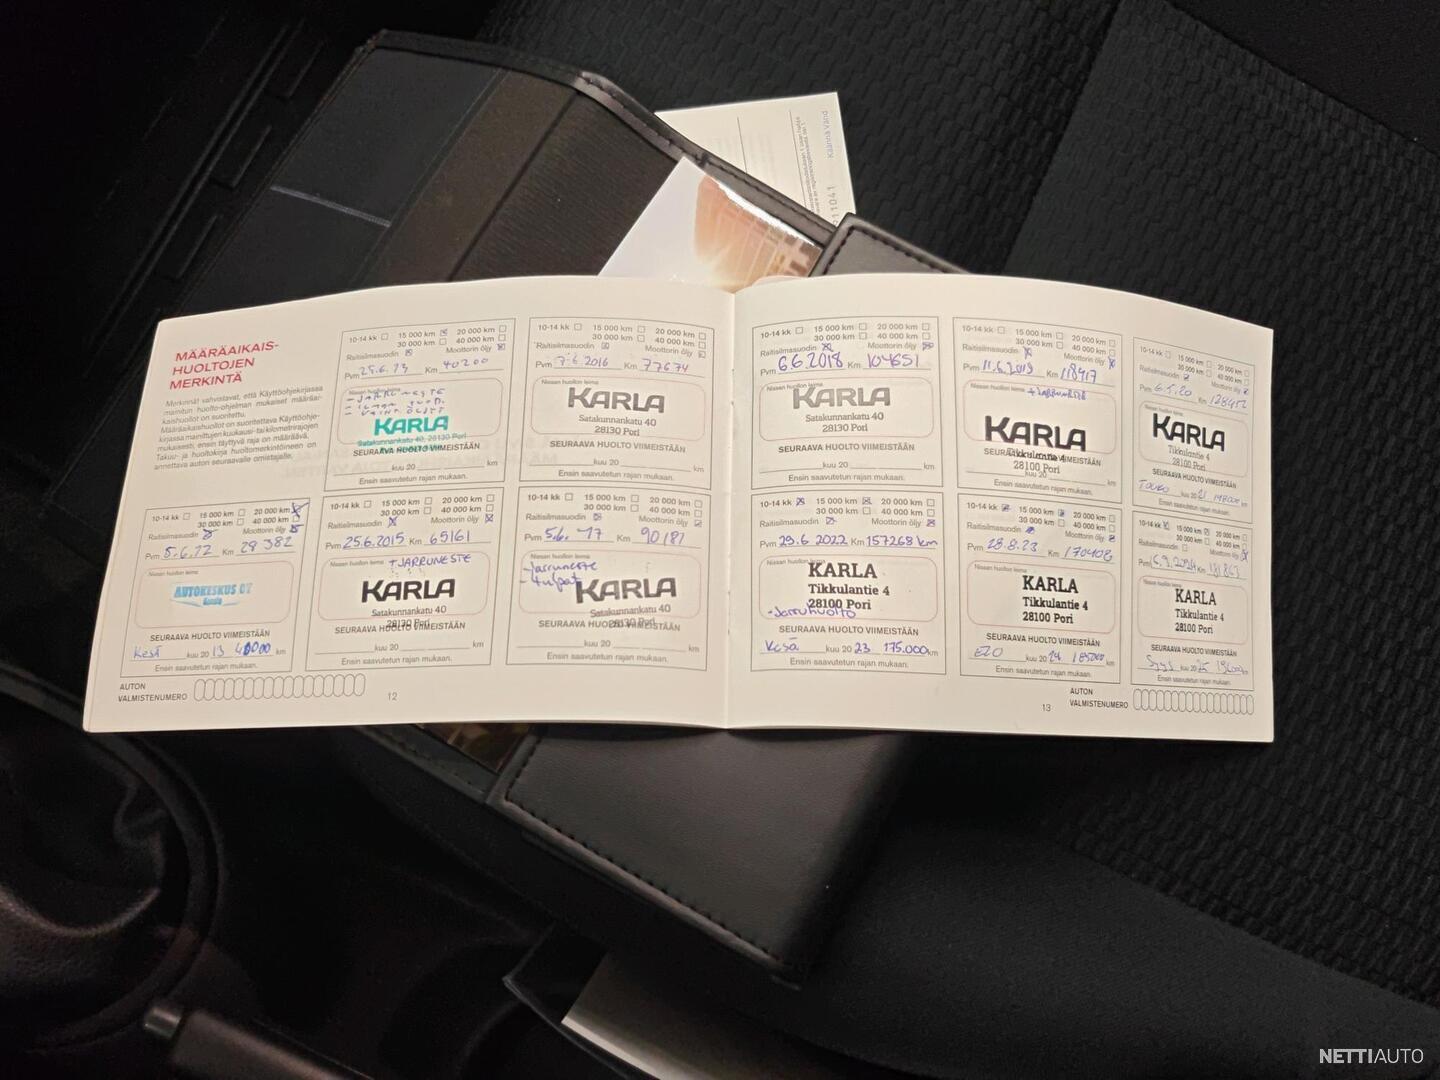 Käännä Vänd
P11041
MÄÄRÄAIKAIS-
HUOLTOJEN
MERKINTÄ
Merkinnät vahvistavat, että Käyttöohjekirjassa
mainitun huolto-ohjelman mukaiset määräai-
kaishuollot on suoritettu.
Määräaikaishuollot on suoritettava Käyttöohje-
kirjassa mainittujen kuukausi- tai kilometrirajojen
mukaisesti, ensin täyttyvä raja on määräävä.
Takuu- ja huoltokirja huoltomerkintöineen on
annettava auton seuraavalle omistajalle.
10-14 kk 15 000 km 20 000 km
30 000 km 40 000 km
Raitisilmasuodin Moottorin öljy
Pvm 5.6.12 Km 29 382
Nissan huollon leima
AUTOKESKUS OY
SEURAAVA HUOLTO VIIMEISTÄÄN
Kesä kuu 20 13 40000 km
Ensin saavutetun rajan mukaan.
10-14 kk 15 000 km 20 000 km
30 000 km 40 000 km
Raitisilmasuodin Moottorin öljy
Pvm 25.6.13 Km 40200
Nissan huollon leima
- JARRUNESTE
KARLA
Satakunnankatu 40, 28130 Pori
SEURAAVA HUOLTO VIIMEISTÄÄN
kuu 20 km
Ensin saavutetun rajan mukaan.
10-14 kk 15 000 km 20 000 km
30 000 km 40 000 km
Raitisilmasuodin Moottorin öljy
Pvm 25.6.2015 Km 65161
Nissan huollon leima
+JARRUNESTE
KARLA
Satakunnankatu 40
28130 Pori
SEURAAVA HUOLTO VIIMEISTÄÄN
kuu 20 km
Ensin saavutetun rajan mukaan.
10-14 kk 15 000 km 20 000 km
30 000 km 40 000 km
Raitisilmasuodin Moottorin öljy
Pvm 7.6.2016 Km 77674
Nissan huollon leima
KARLA
Satakunnankatu 40
28130 Pori
SEURAAVA HUOLTO VIIMEISTÄÄN
kuu 20 km
Ensin saavutetun rajan mukaan.
10-14 kk 15 000 km 20 000 km
30 000 km 40 000 km
Raitisilmasuodin Moottorin öljy
Pvm 5.6.-17 Km 90181
Nissan huollon leima
-Jarruneste
-tulpat
KARLA
Satakunnankatu 40
28130 Pori
SEURAAVA HUOLTO VIIMEISTÄÄN
kuu 20 km
Ensin saavutetun rajan mukaan.
AUTON
VALMISTENUMERO
12
10-14 kk 15 000 km 20 000 km
30 000 km 40 000 km
Raitisilmasuodin Moottorin öljy
Pvm 6.6.2018 Km 104651
Nissan huollon leima
KARLA
Satakunnankatu 40
28130 Pori
SEURAAVA HUOLTO VIIMEISTÄÄN
kuu 20 km
Ensin saavutetun rajan mukaan.
10-14 kk 15 000 km 20 000 km
30 000 km 40 000 km
Raitisilmasuodin Moottorin öljy
Pvm 29.6.2022 Km 157268 km
Nissan huollon leima
KARLA
Tikkulantie 4
28100 Pori
-Jarruhuolto
SEURAAVA HUOLTO VIIMEISTÄÄN
Kesä kuu 20 23 175.000 km
Ensin saavutetun rajan mukaan.
10-14 kk 15 000 km 20 000 km
30 000 km 40 000 km
Raitisilmasuodin Moottorin öljy
Pvm 11.6.2019 Km 118417
Nissan huollon leima
+JARRUNESTE
KARLA
Tikkulantie 4
28100 Pori
SEURAAVA HUOLTO VIIMEISTÄÄN
kuu 20 km
Ensin saavutetun rajan mukaan.
10-14 kk 15 000 km 20 000 km
30 000 km 40 000 km
Raitisilmasuodin Moottorin öljy
Pvm 28.8.23 Km 170408
Nissan huollon leima
KARLA
Tikkulantie 4
28100 Pori
SEURAAVA HUOLTO VIIMEISTÄÄN
ELO kuu 20 24 185000 km
Ensin saavutetun rajan mukaan.
10-14 kk 15 000 km 20 000 km
30 000 km 40 000 km
Raitisilmasuodin Moottorin öljy
Pvm 6.5.20 Km 128452
Nissan huollon leima
KARLA
Tikkulantie 4
28100 Pori
SEURAAVA HUOLTO VIIMEISTÄÄN
Touko kuu 20 21 km
Ensin saavutetun rajan mukaan.
10-14 kk 15 000 km 20 000 km
30 000 km 40 000 km
Raitisilmasuodin Moottorin öljy
Pvm 6.9.2024 Km
Nissan huollon leima
KARLA
Tikkulantie 4
28100 Pori
SEURAAVA HUOLTO VIIMEISTÄÄN
Syys kuu 20 25 km
Ensin saavutetun rajan mukaan.
AUTON
VALMISTENUMERO
13
NETTIAUTO